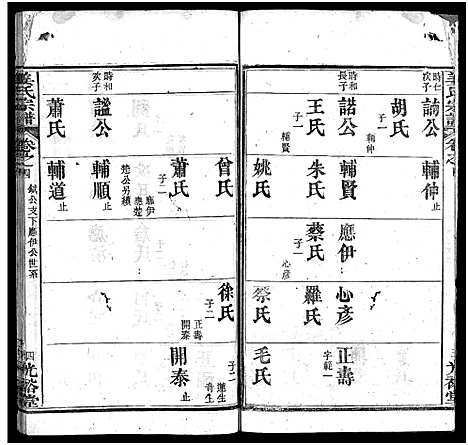 姜氏宗譜
卷之四
光裕堂
時仁次子
訪公
輔仲止
胡氏
子一
輔賢
時和長子
諾公
輔賢
應伊
心彥
正壽
字範一
王氏
朱氏
蔡氏
子一
心彥
羅氏
姚氏
蔡氏
毛氏
曾氏
徐氏
子二
正壽
開泰
子二
蓮生
音生
蕭氏
子二
應伊
應楚
楚公另續
開泰止
時和次子
謐公
輔順止
蕭氏
輔道止
姜氏宗譜
卷之四
鉞公支下應伊公世系
四
光裕堂